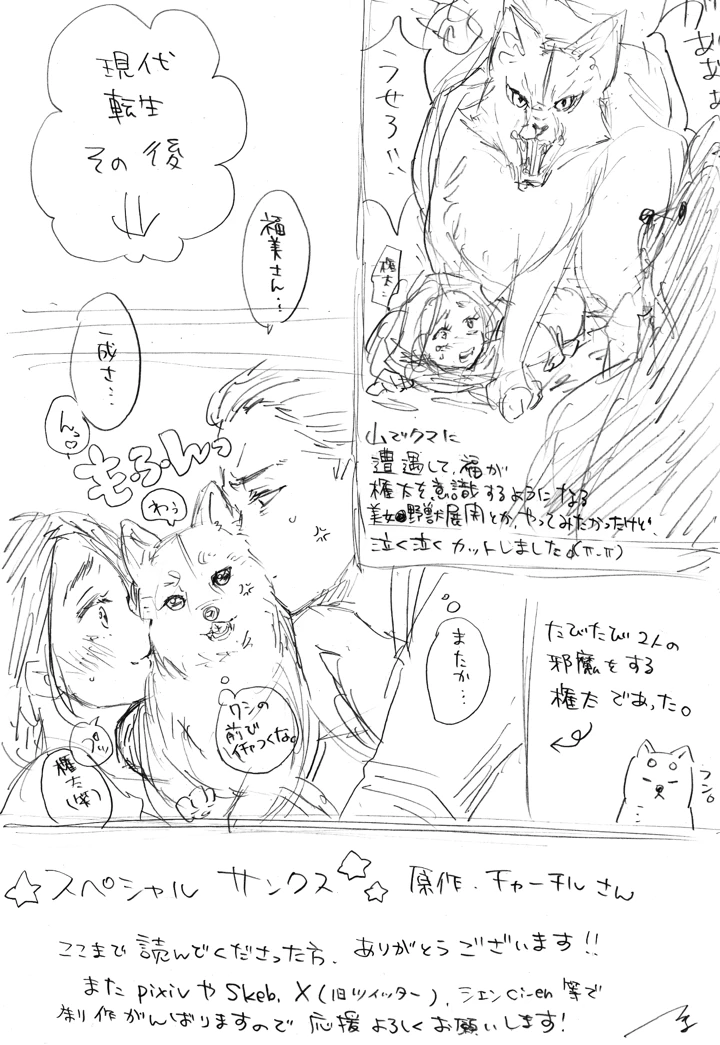 がぁぁぁ
うせろ!!
権太…
山でクマに
遭遇して、福が
権太を意識するようになる
美女野獣展開とか、やってみたかったけど、
泣く泣くカットしましたd(π-π)
現代
転生
その後
福美さん…
一成さ…
んっ♡
も・ふ・んっ
わぅ
ワシの
前で
イチャつくな。
プッ
権太(笑)
またか…
たびたび2人の
邪魔をする
権太であった。
フン。
☆スペシャル サンクス☆☆ 原作.チャーチルさん
ここまで読んでくださった方、ありがとうございます!!
また pixivやSkeb、X(旧ツイッター)、シエンCi-en等で
制作がんばりますので応援よろしくお願いします!